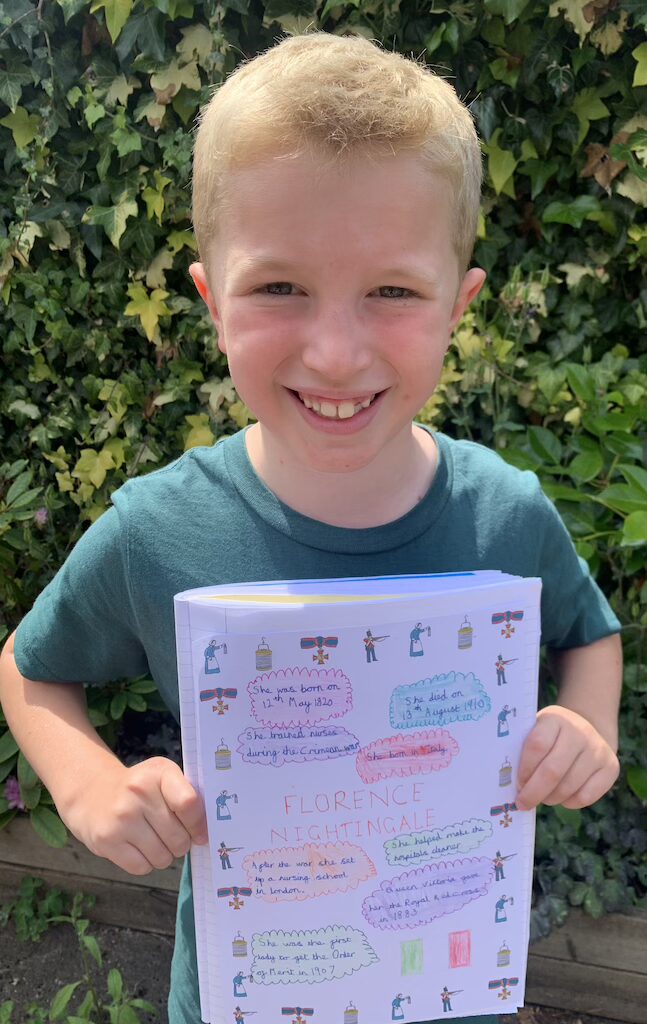 She was born on
12th May 1820.
She died on
13th August 1910
She trained nurses
during the Crimean war
She born in Italy
FLORENCE
NIGHTINGALE
She helped make the
hospitals cleaner
After the war she set
up a nursing school
in london.
Queen Victoria gave
her the Royal Red cross
in 1883
She was the first
lady to get the Order
of Merit in 1907